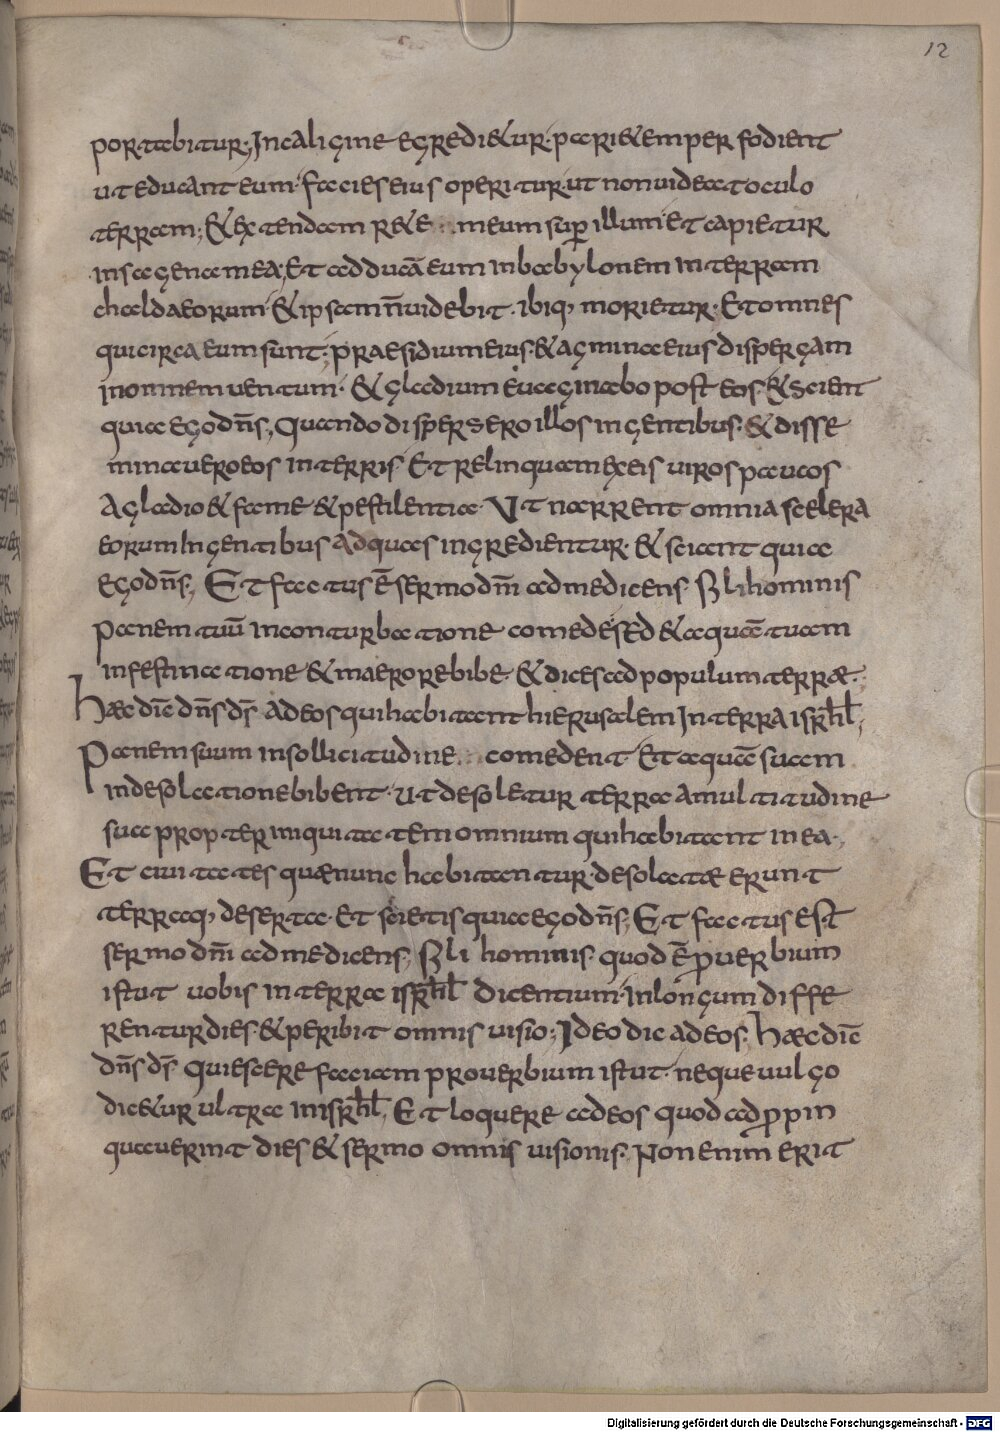 12
portabitur; In caligine egredi&ur. pari&em perfodient
ut educant eum. facies eius operitur. ut non uideat oculo
terram; & extendam r&e meum sup illum. Et capietur
in sagena mea; Et adducā eum in babylonem in terram
chaldaeorum. & ipsam n̄ uidebit. ibiq, morietur. Et omnes
qui circa eum sunt; praesidium eius. & agmina eius dispergam
in omnem uentum. & gladium euaginabo post eos. & scient
quia ego dn̄s; Quando dispersero illos in gentibus. & disse
minauero eos in terris. Et relinquam ex eis uiros paucos
A gladio & fame & pestilentia. Ut narrent omnia scelera
eorum In gentibus ad quas ingredientur. & scient quia
ego dn̄s; Et factus ē sermo dn̄i ad me dicens. Fili hominis
panem tuū in conturbatione comede. sed & aquā tuam
in festinatione & maerore bibe. & dices ad populum terrae.;
Haec dic̄ dn̄s ds̄ ad eos qui habitant hierusalem In terra isrh̄l;
Panem suum in sollicitudine comedent. Et aquā suam
in desolatione bibent. ut desoletur terra a multitudine
sua propter iniquitatem omnium qui habitant in ea.;
Et ciuitates quae nunc habitantur. desolatae erunt
terraq, deserta. Et scietis quia ego dn̄s; Et factus est
sermo dn̄i ad me dicens; Fili hominis. quod ē puerbium
istut uobis in terra isrh̄l dicentium. in longum diffe
rentur dies. & peribit omnis uisio; Ideo dic ad eos. Haec dic̄
dn̄s ds̄ quiescere faciam prouerbium istut. neque uulgo
dic&ur ultra in isrh̄l; Et loquere ad eos quod adppin
quauerint dies & sermo omnis uisionis. Non enim erit
Digitalisierung gefördert durch die Deutsche Forschungsgemeinschaft - DFG